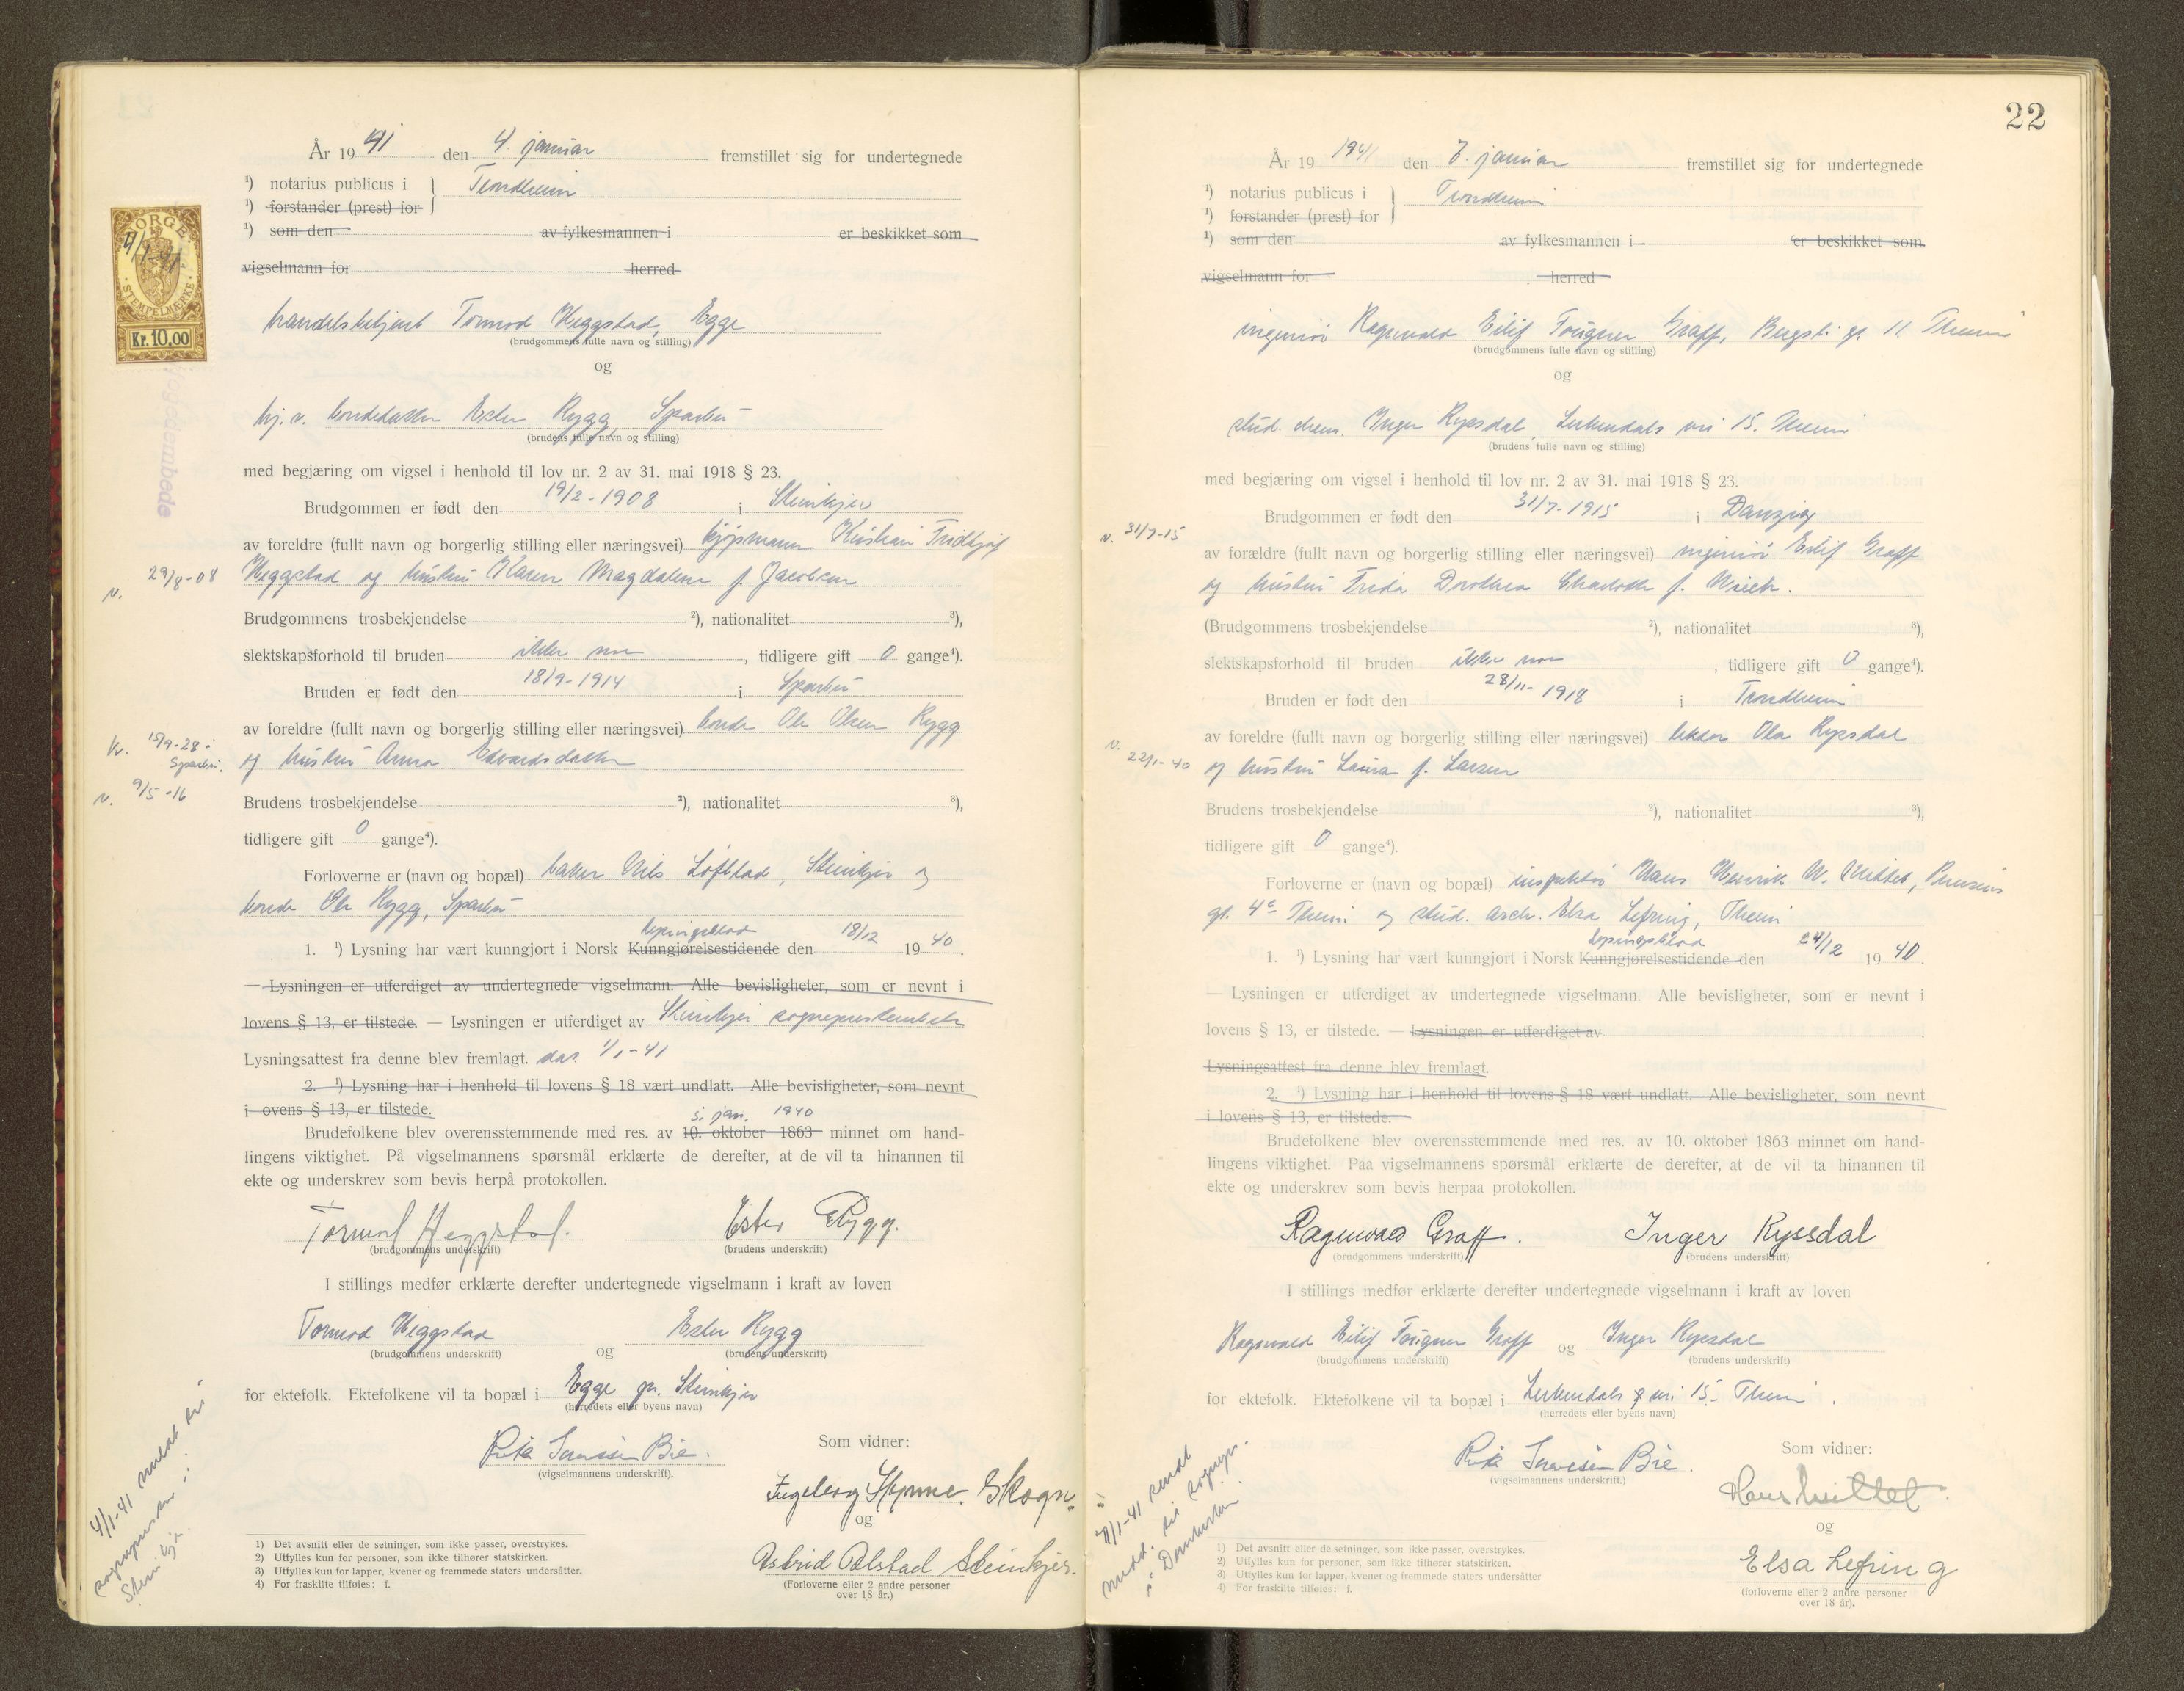 År 1941 den 4. januar fremstillet sig for undertegnede
¹) notarius publicus i } Trondheim
¹) forstander (prest) for
¹) som den av fylkesmannen i er beskikket som
vigselmann for herred
NORGE
4/1-41
STEMPELMÆRKE
Kr. 10,00
handelsbetjent Tormod Heggstad, Egge
(brudgommens fulle navn og stilling)
og
hj.v. bondedatter Ester Rygg, Sparbu
(brudens fulle navn og stilling)
med begjæring om vigsel i henhold til lov nr. 2 av 31. mai 1918 § 23.
Brudgommen er født den 19/2-1908 i Steinkjer
av foreldre (fullt navn og borgerlig stilling eller næringsvei) kjøpmann Kristian Fridtjof
v. 29/8-08 Heggstad og hustru Maren Magdalene f. Jacobsen
Brudgommens trosbekjendelse ²), nationalitet ³),
slektskapsforhold til bruden ikke noe, tidligere gift 0 gange⁴).
Bruden er født den 18/9-1914 i Sparbu
av foreldre (fullt navn og borgerlig stilling eller næringsvei) bonde Ole Olsen Rygg
kv. 15/9-28 i Sparbu. og hustru Anna Edvardsdatter
v. 9/5-16
Brudens trosbekjendelse ²), nationalitet ³),
tidligere gift 0 gange⁴).
Forloverne er (navn og bopæl) baker Nils Løfblad, Steinkjer og
bonde Ole Rygg, Sparbu
1. ¹) Lysning har vært kunngjort i Norsk Kunngjørelsestidende lysingsblad den 18/12 1940.
— Lysningen er utferdiget av undertegnede vigselmann. Alle bevisligheter, som er nevnt i
lovens § 13, er tilstede. — Lysningen er utferdiget av Steinkjer sogneprestembete
Lysningsattest fra denne blev fremlagt. dat. 1/1-41
2. ¹) Lysning har i henhold til lovens § 18 vært undlatt. Alle bevisligheter, som nevnt
i ovens § 13, er tilstede.
5. jan. 1940
Brudefolkene blev overensstemmende med res. av 10. oktober 1863 minnet om hand-
lingens viktighet. På vigselmannens spørsmål erklærte de derefter, at de vil ta hinannen til
ekte og underskrev som bevis herpå protokollen.
Tormod Heggstad. Ester Rygg.
(brudgommens underskrift) (brudens underskrift)
I stillings medfør erklærte derefter undertegnede vigselmann i kraft av loven
Tormod Heggstad og Ester Rygg
(brudgommens underskrift) (brudens underskrift)
for ektefolk. Ektefolkene vil ta bopæl i Egge pr. Steinkjer
(herredets eller byens navn)
Som vidner:
(vigselmannens underskrift).
Ingeborg Hynne. Skogn.
og
Astrid Østad Steinkjer.
(Forloverne eller 2 andre personer
over 18 år.)
4/1-41 meldt til
sognepresten i
Steinkjer
1) Det avsnitt eller de setninger, som ikke passer, overstrykes.
2) Utfylles kun for personer, som ikke tilhører statskirken.
3) Utfylles kun for lapper, kvener og fremmede staters undersåtter.
4) For fraskilte tilføies: f.
22
År 19 1941 den 7. januar fremstillet sig for undertegnede
¹) notarius publicus i } Trondheim
¹) forstander (prest) for
¹) som den av fylkesmannen i er beskikket som
vigselmann for herred
ingeniør Ragnvald Eilif Tougner Graff, Bergsli gt. 11. Theim
(brudgommens fulle navn og stilling)
og
stud. chem. Inger Ryssdal, Lerkendals vei 15. Theim
(brudens fulle navn og stilling)
med begjæring om vigsel i henhold til lov nr. 2 av 31. mai 1918 § 23.
Brudgommen er født den 31/7-1915 i Danzig
v. 31/7-15 av forældre (fullt navn og borgerlig stilling eller næringsvei) ingeniør Eilif Graff
og hustru Frida Dorothea Charlotte f.
(Brudgommens trosbekjendelse ²), nationalitet ³),
slektskapsforhold til bruden ikke noe, tidligere gift 0 gange⁴).
Bruden er født den 28/11-1918 i Trondheim
av foreldre (fullt navn og borgerlig stilling eller næringsvei) lektor Ola Ryssdal
v. 22/1-40 og hustru Laura f. Larsen
Brudens trosbekjendelse ²), nationalitet ³),
tidligere gift 0 gange⁴).
Forloverne er (navn og bopæl) inspektør Hans Henrik W. Huitfet,
gt. 4c Theim og stud. arch. Elsa Lefring, Theim
1. ¹) Lysning har vært kunngjort i Norsk Kunngjørelsestidende lysingsblad den 24/12 1940.
— Lysningen er utferdiget av undertegnede vigselmann. Alle bevisligheter, som er nevnt i
lovens § 13, er tilstede. — Lysningen er utferdiget av
Lysningsattest fra denne blev fremlagt.
2. ¹) Lysning har i henhold til lovens § 18 vært undlatt. Alle bevisligheter, som nevnt
i lovens § 13, er tilstede.
Brudefolkene blev overensstemmende med res. av 10. oktober 1863 minnet om hand-
lingens viktighet. Paa vigselmannens spørsmål erklærte de derefter, at de vil ta hinannen til
ekte og underskrev som bevis herpaa protokollen.
Ragnvald Graff. Inger Ryssdal
(brudgommens underskrift) (brudens underskrift)
I stillings medfør erklærte derefter undertegnede vigselmann i kraft av loven
Ragnvald Eilif Tougner Graff og Inger Ryssdal
(brudgommens underskrift) (brudens underskrift)
for ektefolk. Ektefolkene vil ta bopæl i Lerkendals vei 15. Theim.
(herredets eller byens navn)
Som vidner:
(vigselmannens underskrift.)
og
Elsa Lefring
(forloverne eller 2 andre personer
over 18 år).
7/1-41 sendt
medd. til sognepr.
i Domkirken
1) Det avsnitt eller de setninger, som ikke passer, overstrykes.
2) Utfylles kun for personer, som ikke tilhører statskirken.
3) Utfylles kun for lapper, kvener og fremmede staters undersåtter
4) For fraskilte tilføies: f.